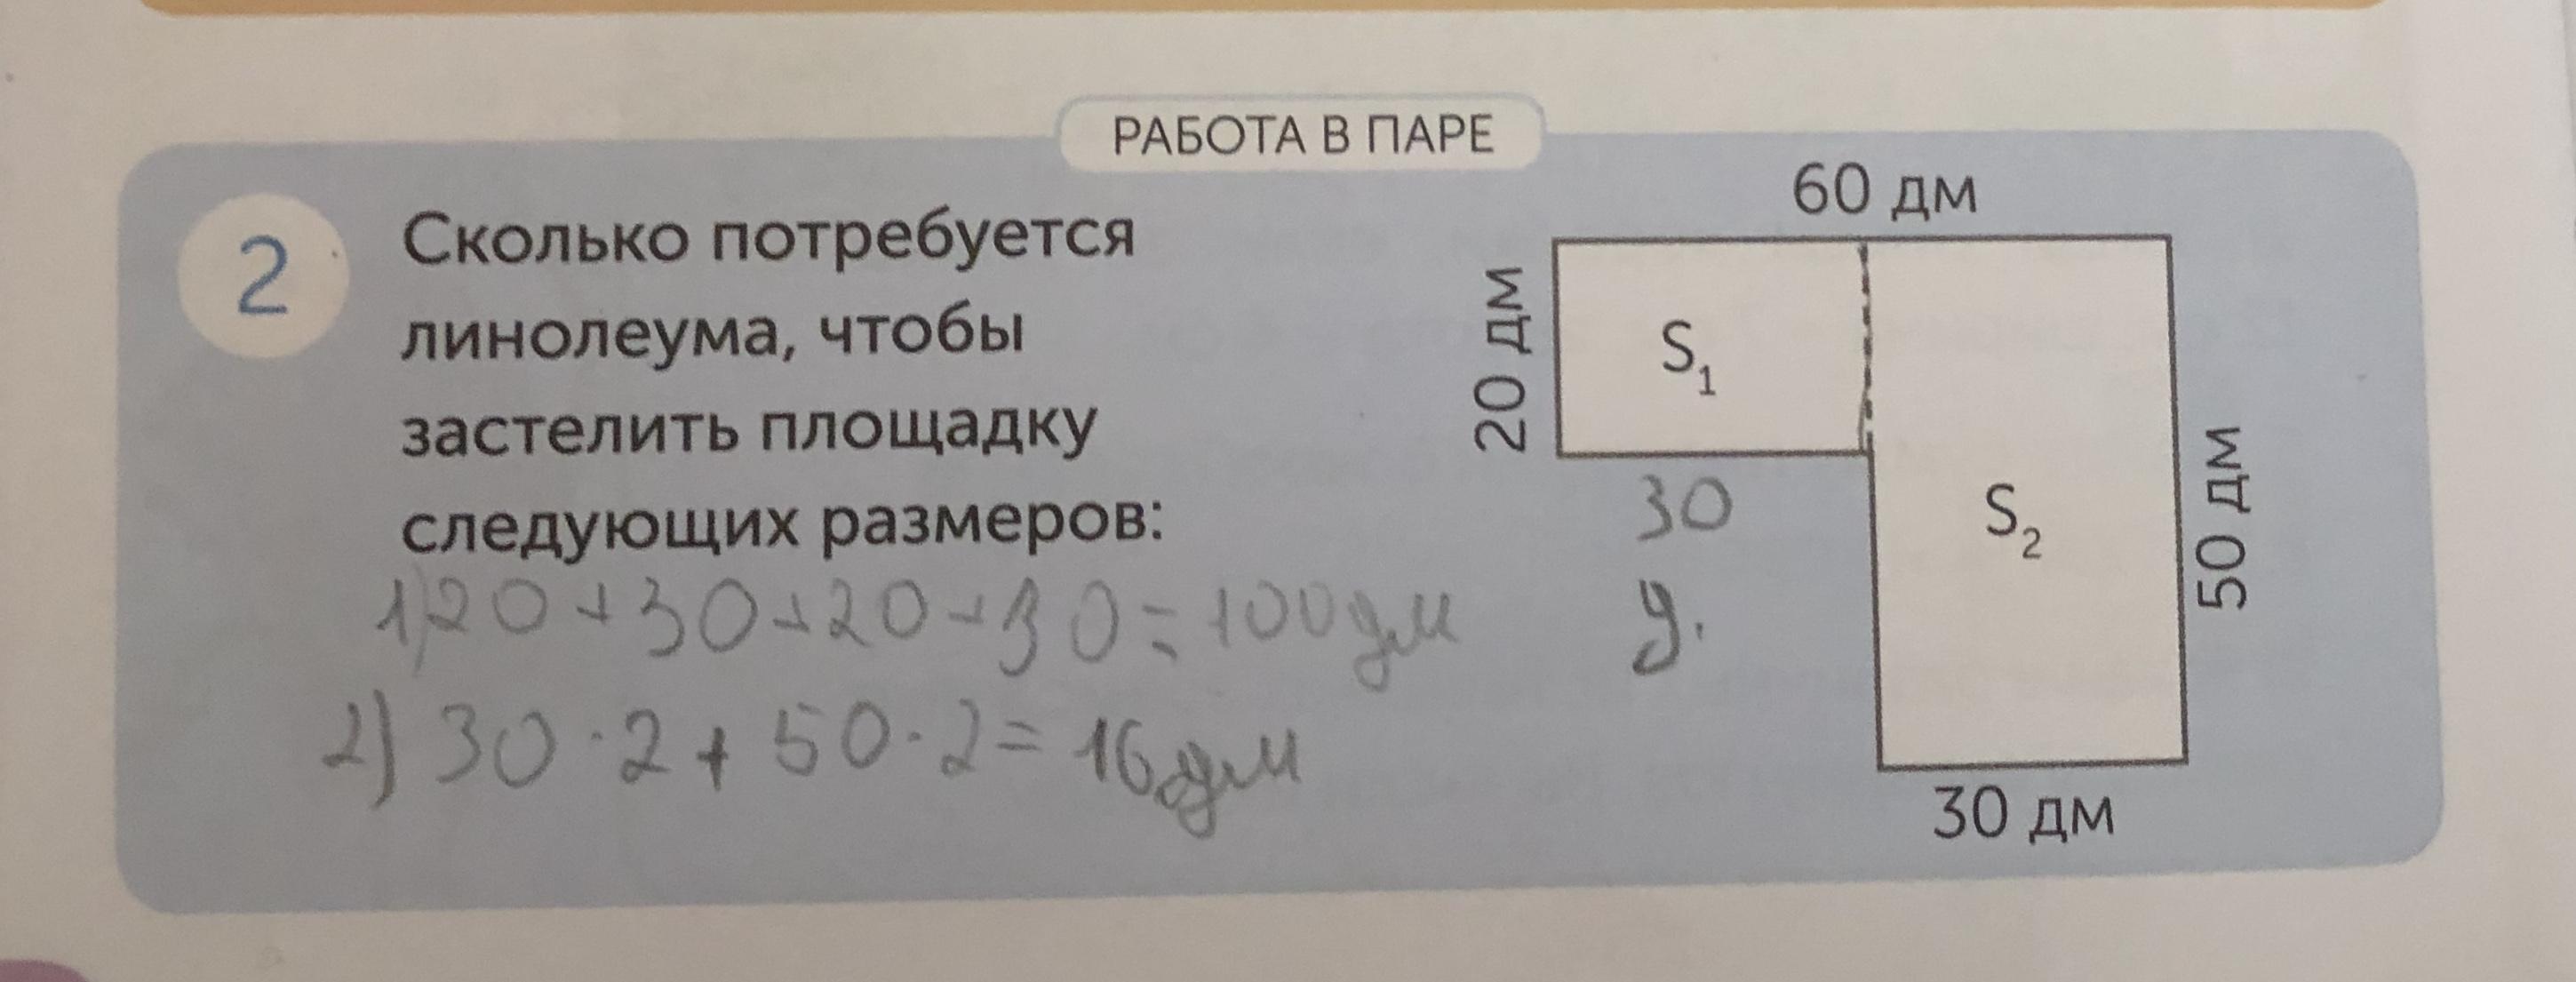 РАБОТА В ПАРЕ
2
Сколько потребуется
линолеума, чтобы
застелить площадку
следующих размеров:
60 дм
20 дм
S₁
S₂
50 дм
30 дм
30
1) 20+30+20+30=100дм
д.
2) 30·2+50·2=160дм